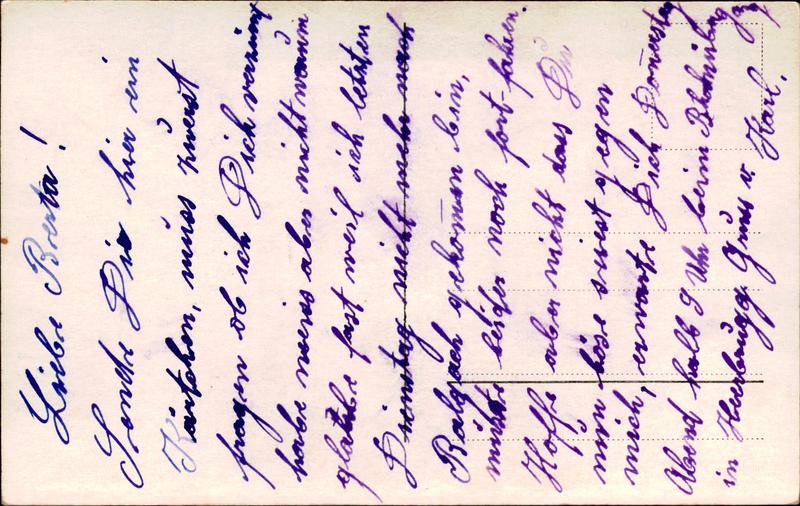 Liebe Berta!
Sendte Dir hier ein
Kärtchen, muss zuerst
fragen ob ich Dich verzürnt
habe weiss aber nicht warum
glaube fast weil ich letzten
Dienstag nicht mehr nach
Balgach gekommen bin,
musste leider noch fort-fahren.
Hoffe aber nicht das Du
mir böse seiest gegen
mich, erwarte Dich Donerstag
Abend halb 9 Uhr beim
in Heerbrugg. Gruss v. Karl.